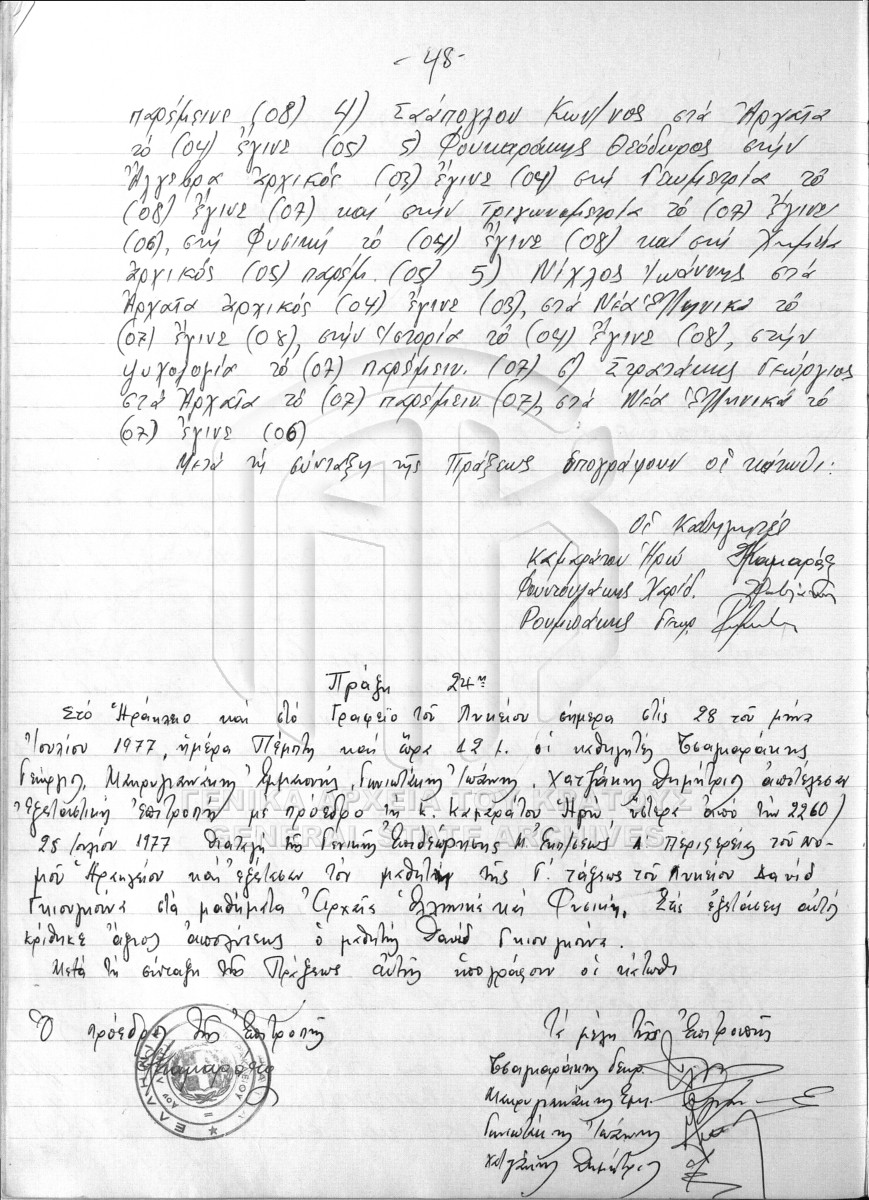 - 48 -
παρέμεινε (08) 4) Σαάπογλου Κων/νος στά Ἀρχαῖα
τό (04) ἔγινε (05) 5) Φουκαράκης Θεόδωρος στήν
Ἄλγεβρα ἀρχικός (03) ἔγινε (04) στή Γεωμετρία τό
(08) ἔγινε (07) καί στήν Τριγωνομετρία τό (07) ἔγινε
(06), στή Φυσική τό (04) ἔγινε (08) καί στή Χημεία
ἀρχικός (05) παρέμ. (05) 5) Νίχλος Ἰωάννης στά
Ἀρχαῖα ἀρχικός (04) ἔγινε (03), στά Νέα Ἑλληνικά τό
(07) ἔγινε (08), στήν Ἱστορία τό (04) ἔγινε (08), στήν
ψυχολογία τό (07) παρέμειν. (07) 6) Στρατάκης Γεώργιος
στά Ἀρχαῖα τό (07) παρέμειν. (07), στά Νέα Ἑλληνικά τό
(07) ἔγινε (06)
Μετά τή σύνταξη τῆς Πράξεως ὑπογράφουν οἱ κάτωθι:
Οἱ Καθηγητές
Καμαράτου Ἡρώ
Φουντουλάκης Χαρίδ.
Ρουμπάκης Γεωρ.
Πράξη 24η
Στό Ἡράκλειο καί στό Γραφεῖο τοῦ Λυκείου σήμερα στίς 28 τοῦ μήνα
Ἰουλίου 1977, ἡμέρα Πέμπτη καί ὥρα 12 οἱ καθηγητές Τσαμαράκης
Γεώργιος, Μακρυγιαννάκης Ἐμμανουήλ, Γωνιωτάκης Ἰωάννης, Χατζάκης Δημήτριος ἀποτέλεσαν
Ἐξεταστική Ἐπιτροπή μέ πρόεδρο τή κ. Καμαράτου Ἡρώ ὕστερα ἀπό τήν 2260/
25 Ἰουλίου 1977 διαταγή τῆς Γενικῆς Ἐπιθεωρήσεως Μ. Ἐκπ/σεως Περιφερείας τοῦ Νο-
μοῦ Ἡρακλείου καί ἐξέτασαν τόν μαθητή τῆς Γ΄. τάξεως τοῦ Λυκείου David
Γκιουγκούνα στά μαθήματα Ἀρχαῖα Ἑλληνικά καί Φυσική. Στίς ἐξετάσεις αὐτές
κρίθηκε ἄξιος ἀπολύσεως ὁ μαθητής David Γκιουγκούνα.
Μετά τή σύνταξη τῆς Πράξεως αὐτῆς ὑπογράφουν οἱ κάτωθι
Ὁ πρόεδρος τῆς Ἐπιτροπῆς
Τά μέλη τῆς Ἐπιτροπῆς
Τσαμαράκης Γεωρ.
Μακρυγιαννάκης Ἐμμ.
Γωνιωτάκης Ἰωάννης
Χατζάκης Δημήτριος
ΓΕΝΙΚΑ ΑΡΧΕΙΑ ΤΟΥ ΚΡΑΤΟΥΣ
GENERAL STATE ARCHIVES